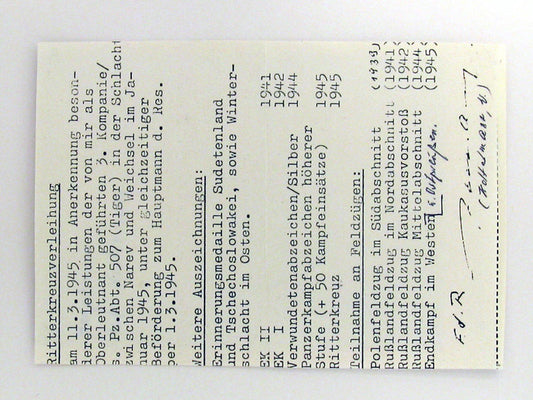 Ritterkreuzverleihung
am 11.3.1945 in Anerkennung beson-
derer Leistungen der von mir als
Oberleutnant geführten 3. Kompanie/
s. Pz.Abt. 507 (Tiger) in der Schlacht
zwischen Narev und Weichsel im Ja-
nuar 1945, unter gleichzeitiger
Beförderung zum Hauptmann d. Res.
per 1.3.1945.
Weitere Auszeichnungen:
Erinnerungsmedaille Sudetenland
und Tschechoslowakei, sowie Winter-
schlacht im Osten.
EK II 1941
EK I 1942
Verwundetenabzeichen/Silber 1944
Panzerkampfabzeichen höherer
Stufe (+ 50 Kampfeinsätze) 1945
Ritterkreuz 1945
Teilnahme an Feldzügen:
Polenfeldzug im Südabschnitt (1939)
Rußlandfeldzug im Nordabschnitt (1941)
Rußlandfeldzug Kaukausvorstoß (1942)
Rußlandfeldzug Mittelabschnitt (1944)
Endkampf im Westen (1945)
F.d.R